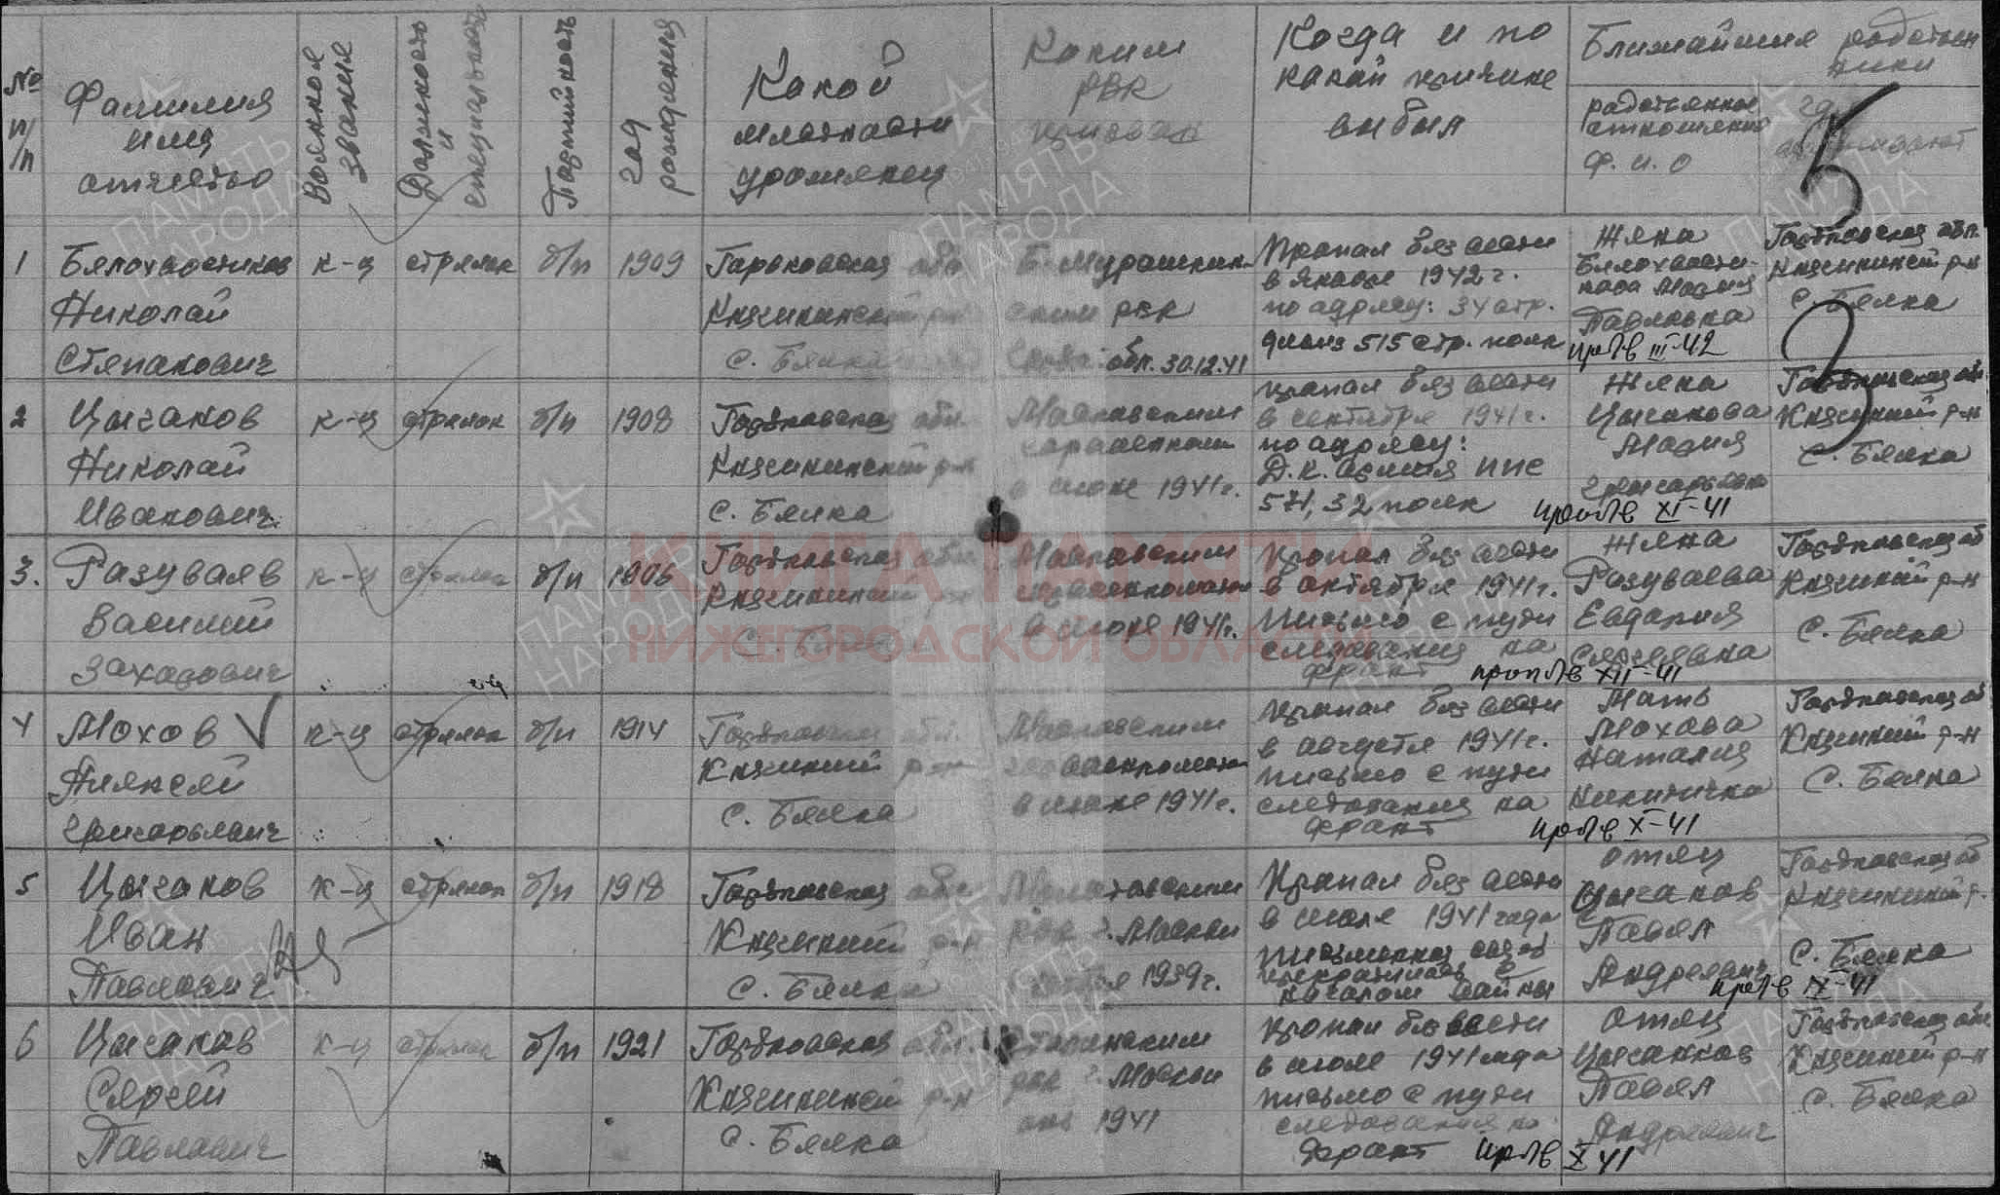 № п/п
Фамилия имя отчество
Военное звание
Должность и специальность
Партийность
год рождения
Какой местности уроженец
Каким РВК призван
Когда и по какой причине выбыл
Ближайшие родственники
родственное отношение ф. и. о
5
3
1
Белохвостиков Николай Степанович
к-ц
стрелок
б/п
1909
Горьковская обл
Княгининский р-н
с. Белка
Б-Мурашкин-
ским РВК
обл. 30.12.41
Пропал без вести
в январе 1942 г.
по адресу: 34 стр.
515 стр. полк
Жена
Белохвости-
кова Мария
Павловна
проп/в III-42
Горьковская обл.
Княгинский р-н
с. Белка
2
Цыганов
Николай
Иванович
к-ц
стрелок
б/п
1908
Горьковская обл.
Княгининский р-н
с. Белка
Московским
горвоенкомат
в июне 1941г.
пропал без вести
в сентябре 1941г.
по адресу:
Д.К. Армия ППС
571, 32 полк
Жена
Цыганова
Мария
Григорьевна
проп/в XI-41
Горьковская об
Княгинский р-н
с. Белка
3.
Разуваев
Василий
Захарович
к-ц
стрелок
б/п
1906
Горьковская обл
Княгининский р-н
с. Белка
Московским
горвоенкоматом
в июне 1941г.
Пропал без вести
в октябре 1941г.
письмо с пути
следования на
фронт
проп/в XII-41
Жена
Разуваева
Евдокия
Сергеевна
Горьковская об
Княгинский р-н
с. Белка
4
Мохов V
Алексей
Григорьевич
к-ц
стрелок
б/п
1914
Горьковская обл.
Княгинский р-н
с. Белка
Московским
горвоенкоматом
в июне 1941г.
Пропал без вести
в августе 1941г.
письмо с пути
следования на
фронт
проп/в X-41
Мать
Мохова
Наталия
Никитична
Горьковская об
Княгинский р-н
с. Белка
5
Цыганов
Иван
Павлович
к-ц
стрелок
б/п
1918
Горьковская обл
Княгинский р-н
с. Белка
Молотовским
РВК г. Москвы
1939г.
Пропал без вести
в июле 1941 года
письменная связь
прекратилась с
началом войны
отец
Цыганов
Павел
Андреевич
проп/в IX-41
Горьковская об
Княгинский р-
с. Белка
6
Цыганов
Сергей
Павлович
к-ц
стрелок
б/п
1921
Горьковская обл.
Княгинский р-н
с. Белка
РВК г. Москвы
1941
Пропал без вести
в июле 1941 года
письмо с пути
следования на
фронт
проп/в X 41
отец
Цыганков
Павел
Андреевич
Горьковская обл
Княгинский р-н
с. Белка
КНИГА ПАМЯТИ
НИЖЕГОРОДСКОЙ ОБЛАСТИ
ПАМЯТЬ НАРОДА
ПАМЯТЬ НАРОДА
ПАМЯТЬ НАРОДА
ПАМЯТЬ НАРОДА
ПАМЯТЬ НАРОДА
ПАМЯТЬ НАРОДА
ПАМЯТЬ НАРОДА
ПАМЯТЬ НАРОДА